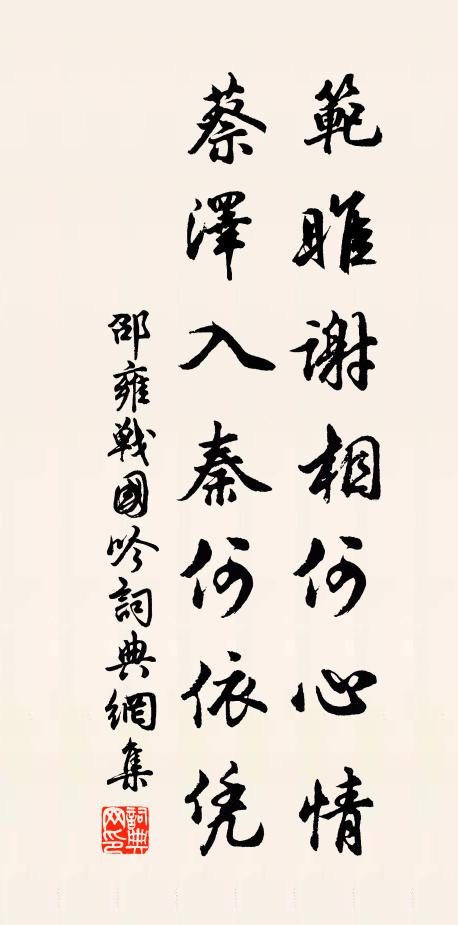 範雎謝相何心情
蔡澤入秦何依凭
邵雍戰國吟詞典網集
詞典网印